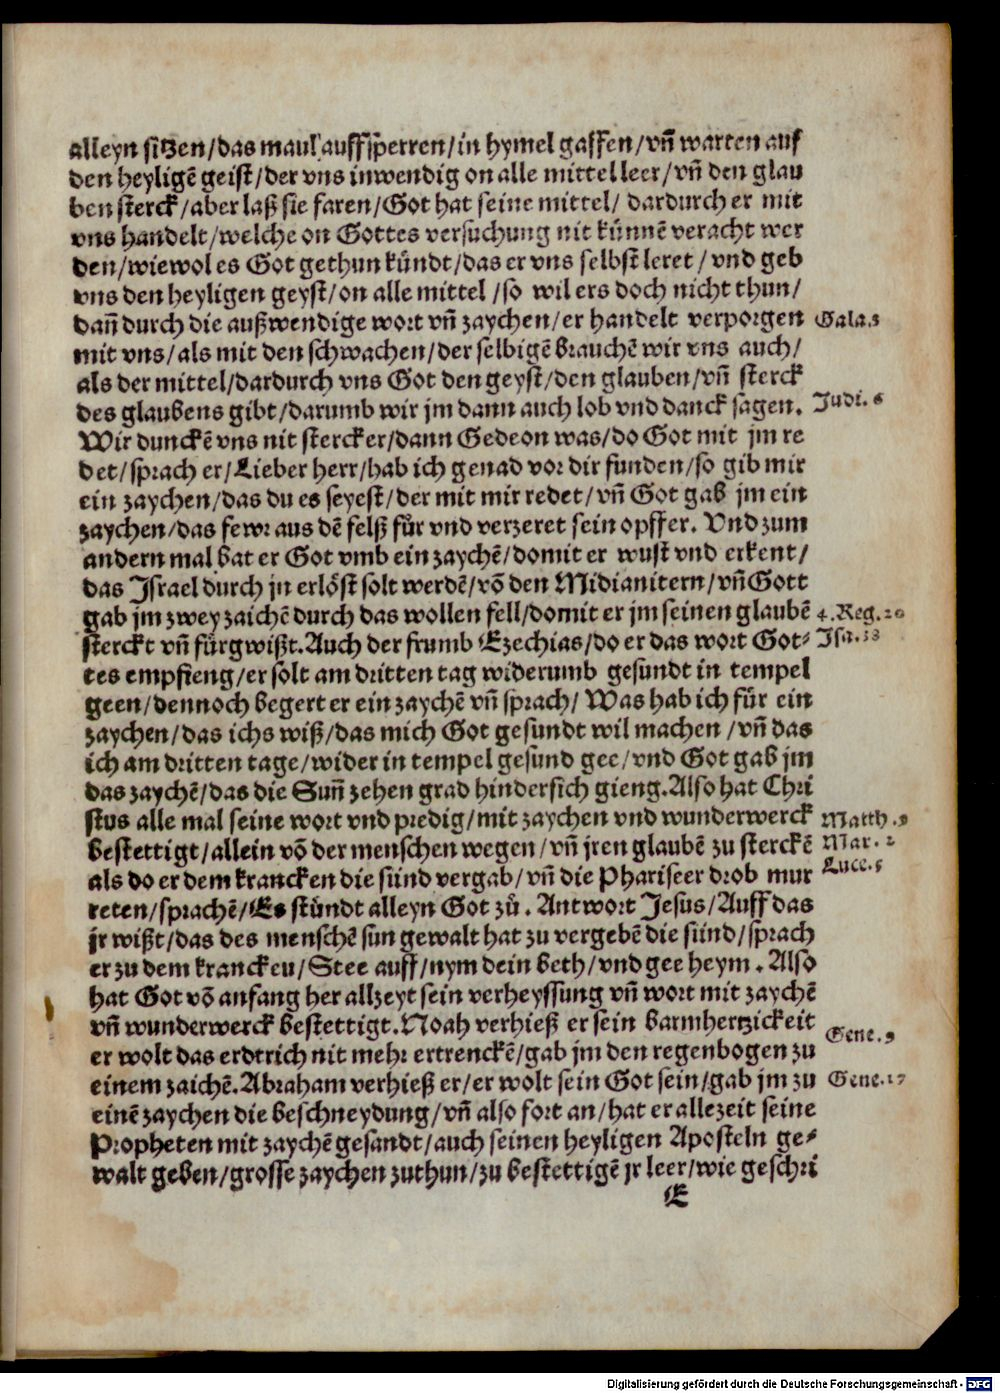 alleyn sitzen/das maul auffsperren/in hymel gaffen/vñ warten auf
den heyligē geist/der vns inwendig on alle mittel leer/vñ den glau
ben sterck/aber laß sie faren/Got hat seine mittel/ dardurch er mit
vns handelt/welche on Gottes versuchung nit künnē veracht wer
den/wiewol es Got gethun kündt/das er vns selbst leret/ vnd geb
vns den heyligen geyst/on alle mittel /so wil ers doch nicht thun/
dañ durch die außwendige wort vñ zaychen/er handelt verporgen
Gala.3
mit vns/als mit den schwachen/der selbigē brauchē wir vns auch/
als der mittel/dardurch vns Got den geyst/den glauben/vñ sterck
des glaubens gibt/darumb wir jm dann auch lob vnd danck sagen.
Judi. 6
Wir dunckē vns nit stercker/dann Gedeon was/do Got mit jm re
det/sprach er/Lieber herr/hab ich genad vor dir funden/so gib mir
ein zaychen/das du es seyest/der mit mir redet/vñ Got gab jm ein
zaychen/das fewr aus dē felß für vnd verzeret sein opffer. Vnd zum
andern mal bat er Got vmb ein zaychē/domit er wust vnd erkent/
das Israel durch jn erlöst solt werdē/vō den Midianitern/vñ Gott
gab jm zwey zaichē durch das wollen fell/domit er jm seinen glaubē
4. Reg. 20
sterckt vñ fürgwißt. Auch der frumb Ezechias/do er das wort Got-
Isa. 38
tes empfieng/er solt am dritten tag widerumb gesundt in tempel
geen/dennoch begert er ein zaychē vñ sprach/ Was hab ich für ein
zaychen/das ichs wiß/das mich Got gesundt wil machen /vñ das
ich am dritten tage/wider in tempel gesund gee/vnd Got gab jm
das zaychē/das die Suñ zehen grad hindersich gieng. Also hat Chri
stus alle mal seine wort vnd predig/mit zaychen vnd wunderwerck
Matth. 9
bestettigt/allein vō der menschen wegen/vñ jren glaubē zu sterckē
Mar. 2
als do er dem krancken die sünd vergab/vñ die Phariseer drob mur
Luce. 5
reten/sprachē/Es stündt alleyn Got zů. Antwort Jesus/Auff das
jr wißt/das des menschē sun gewalt hat zu vergebē die sünd/sprach
er zu dem krancken/Stee auff/nym dein beth/vnd gee heym. Also
hat Got vō anfang her allzeyt sein verheyssung vñ wort mit zaychē
vñ wunderwerck bestettigt. Noah verhieß er sein barmhertzickeit
Gene. 9
er wolt das erdtrich nit mehr ertrenckē/gab jm den regenbogen zu
einem zaichē. Abraham verhieß er/er wolt sein Got sein/gab jm zu
Gene. 17
einē zaychen die beschneydung/vñ also fort an/hat er allezeit seine
Propheten mit zaychē gesandt/auch seinen heyligen Aposteln ge-
walt geben/grosse zaychen zuthun/zu bestettigē jr leer/wie geschri
E
Digitalisierung gefördert durch die Deutsche Forschungsgemeinschaft - DFG